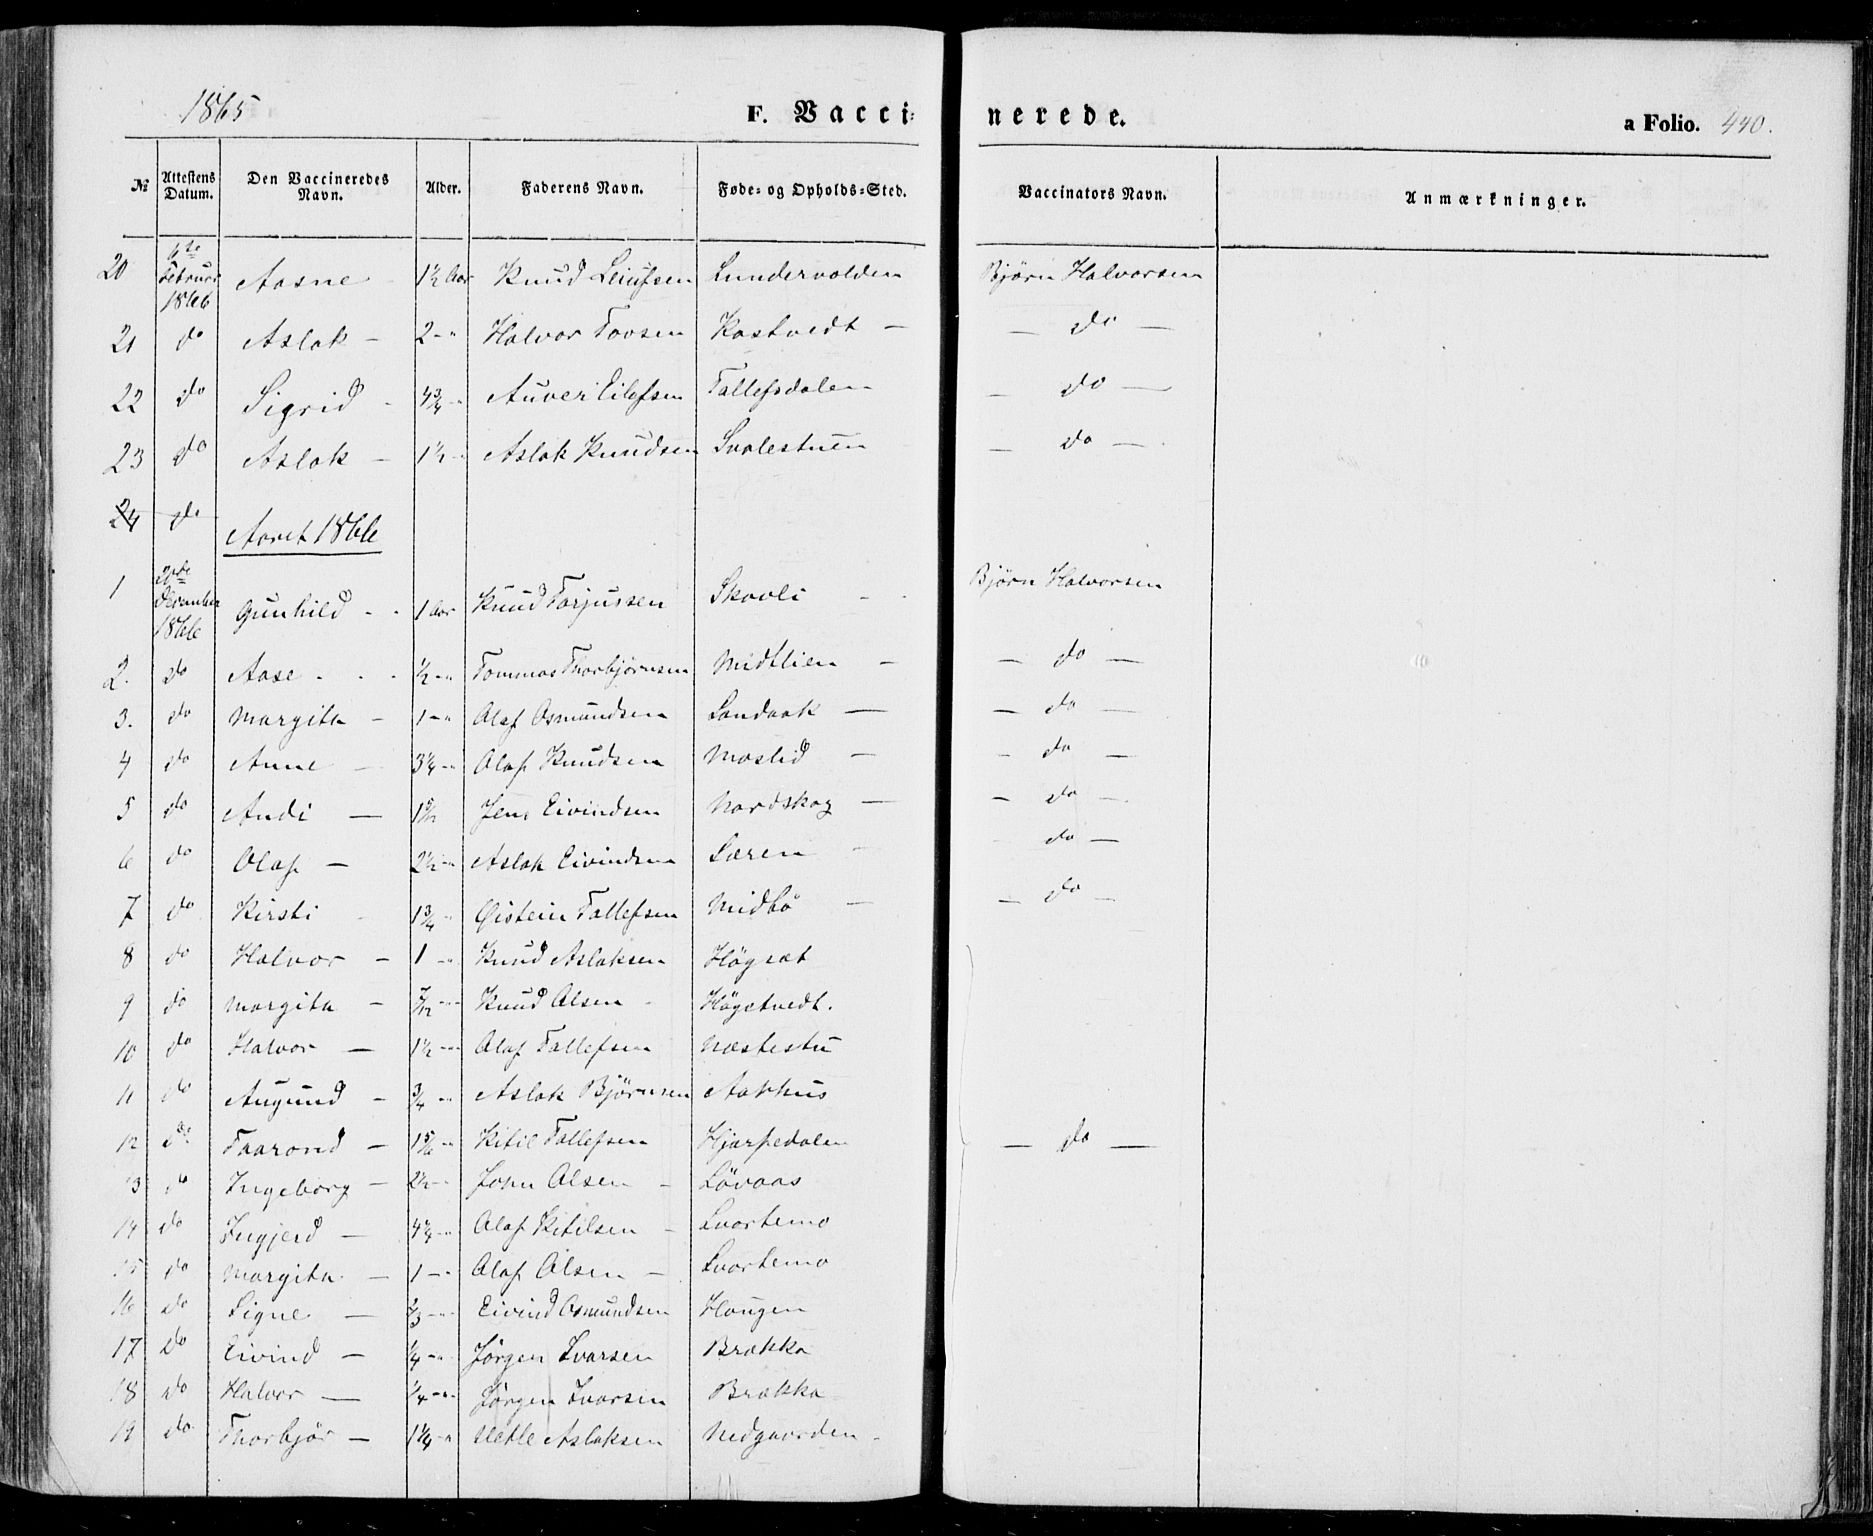 1865 F. Vaccinerede. a Folio. 440.
№ Attestens Datum. Den Vaccineredes Navn. Alder. Faderens Navn. Føde- og Opholds-Sted. Vaccinators Navn. Anmærkninger.
20 6te Februar 1866 Aasne 1½ Aar Knud Leiufsen Lundervolden Bjørn Halvorsen
21 do Aslak - 2 -" Halvor Tovsen Kostvedt - - do -
22 do Sigrid - 4¾ -" Auver Eilefsen Tallefsdalen - do -
23 do Aslak - 1½ -" Aslak Knudsen Svalestuen - do -
24 do
Aaret 1866
1 20de December 1866 Gunhild - - 1 Aar Knud Torjussen Skovli - - Bjørn Halvorsen
2. do Aase - - - ½ -" Tommas Thorbjørnsen Midtlien - - do -
3. do Margita - 1 -" Olaf Osmundsen Sandaak - - do -
4 do Anne - 3¼ -" Olaf Knudsen Moslid - - do -
5 do Andi - 1 5/12 Jens Eivindsen Nordskog - - do -
6 do Olaf - 2½ -" Aslak Eivindsen Særen - - do -
7 do Kirsti - 1¾ -" Øistein Tallefsen Midbø - - do -
8 do Halvor - 1 -" Knud Aslaksen Høgsæt
9 do Margita - 7/12 -" Knud Olsen - Høgetvedt.
10 do Halvor - 1½ -" Olaf Tallefsen Næstestu
11 do Augund - ¾ -" Aslak Bjørnsen Aarhus
12 do Taarond - 1 5/6 -" Kitil Tallefsen Hjærpedalen - do -
13 do Ingeborg - 2½ -" John Olsen - Løvaas
14 do Ingjerd - 4¼ -" Olaf Kitilsen - Svortemo
15 do Margita - 1 -" Olaf Olsen - Svortemo
16 do Signe - ⅓ -" Eivind Osmundsen Haugen
17 do Eivind - ¼ -" Jørgen Ivarsen Brækka
18 do Halvor - ¼ -" Jørgen Ivarsen Brækka
19 do Thorbjør - 1¼ -" Vetle Aslaksen Nedgaarden -